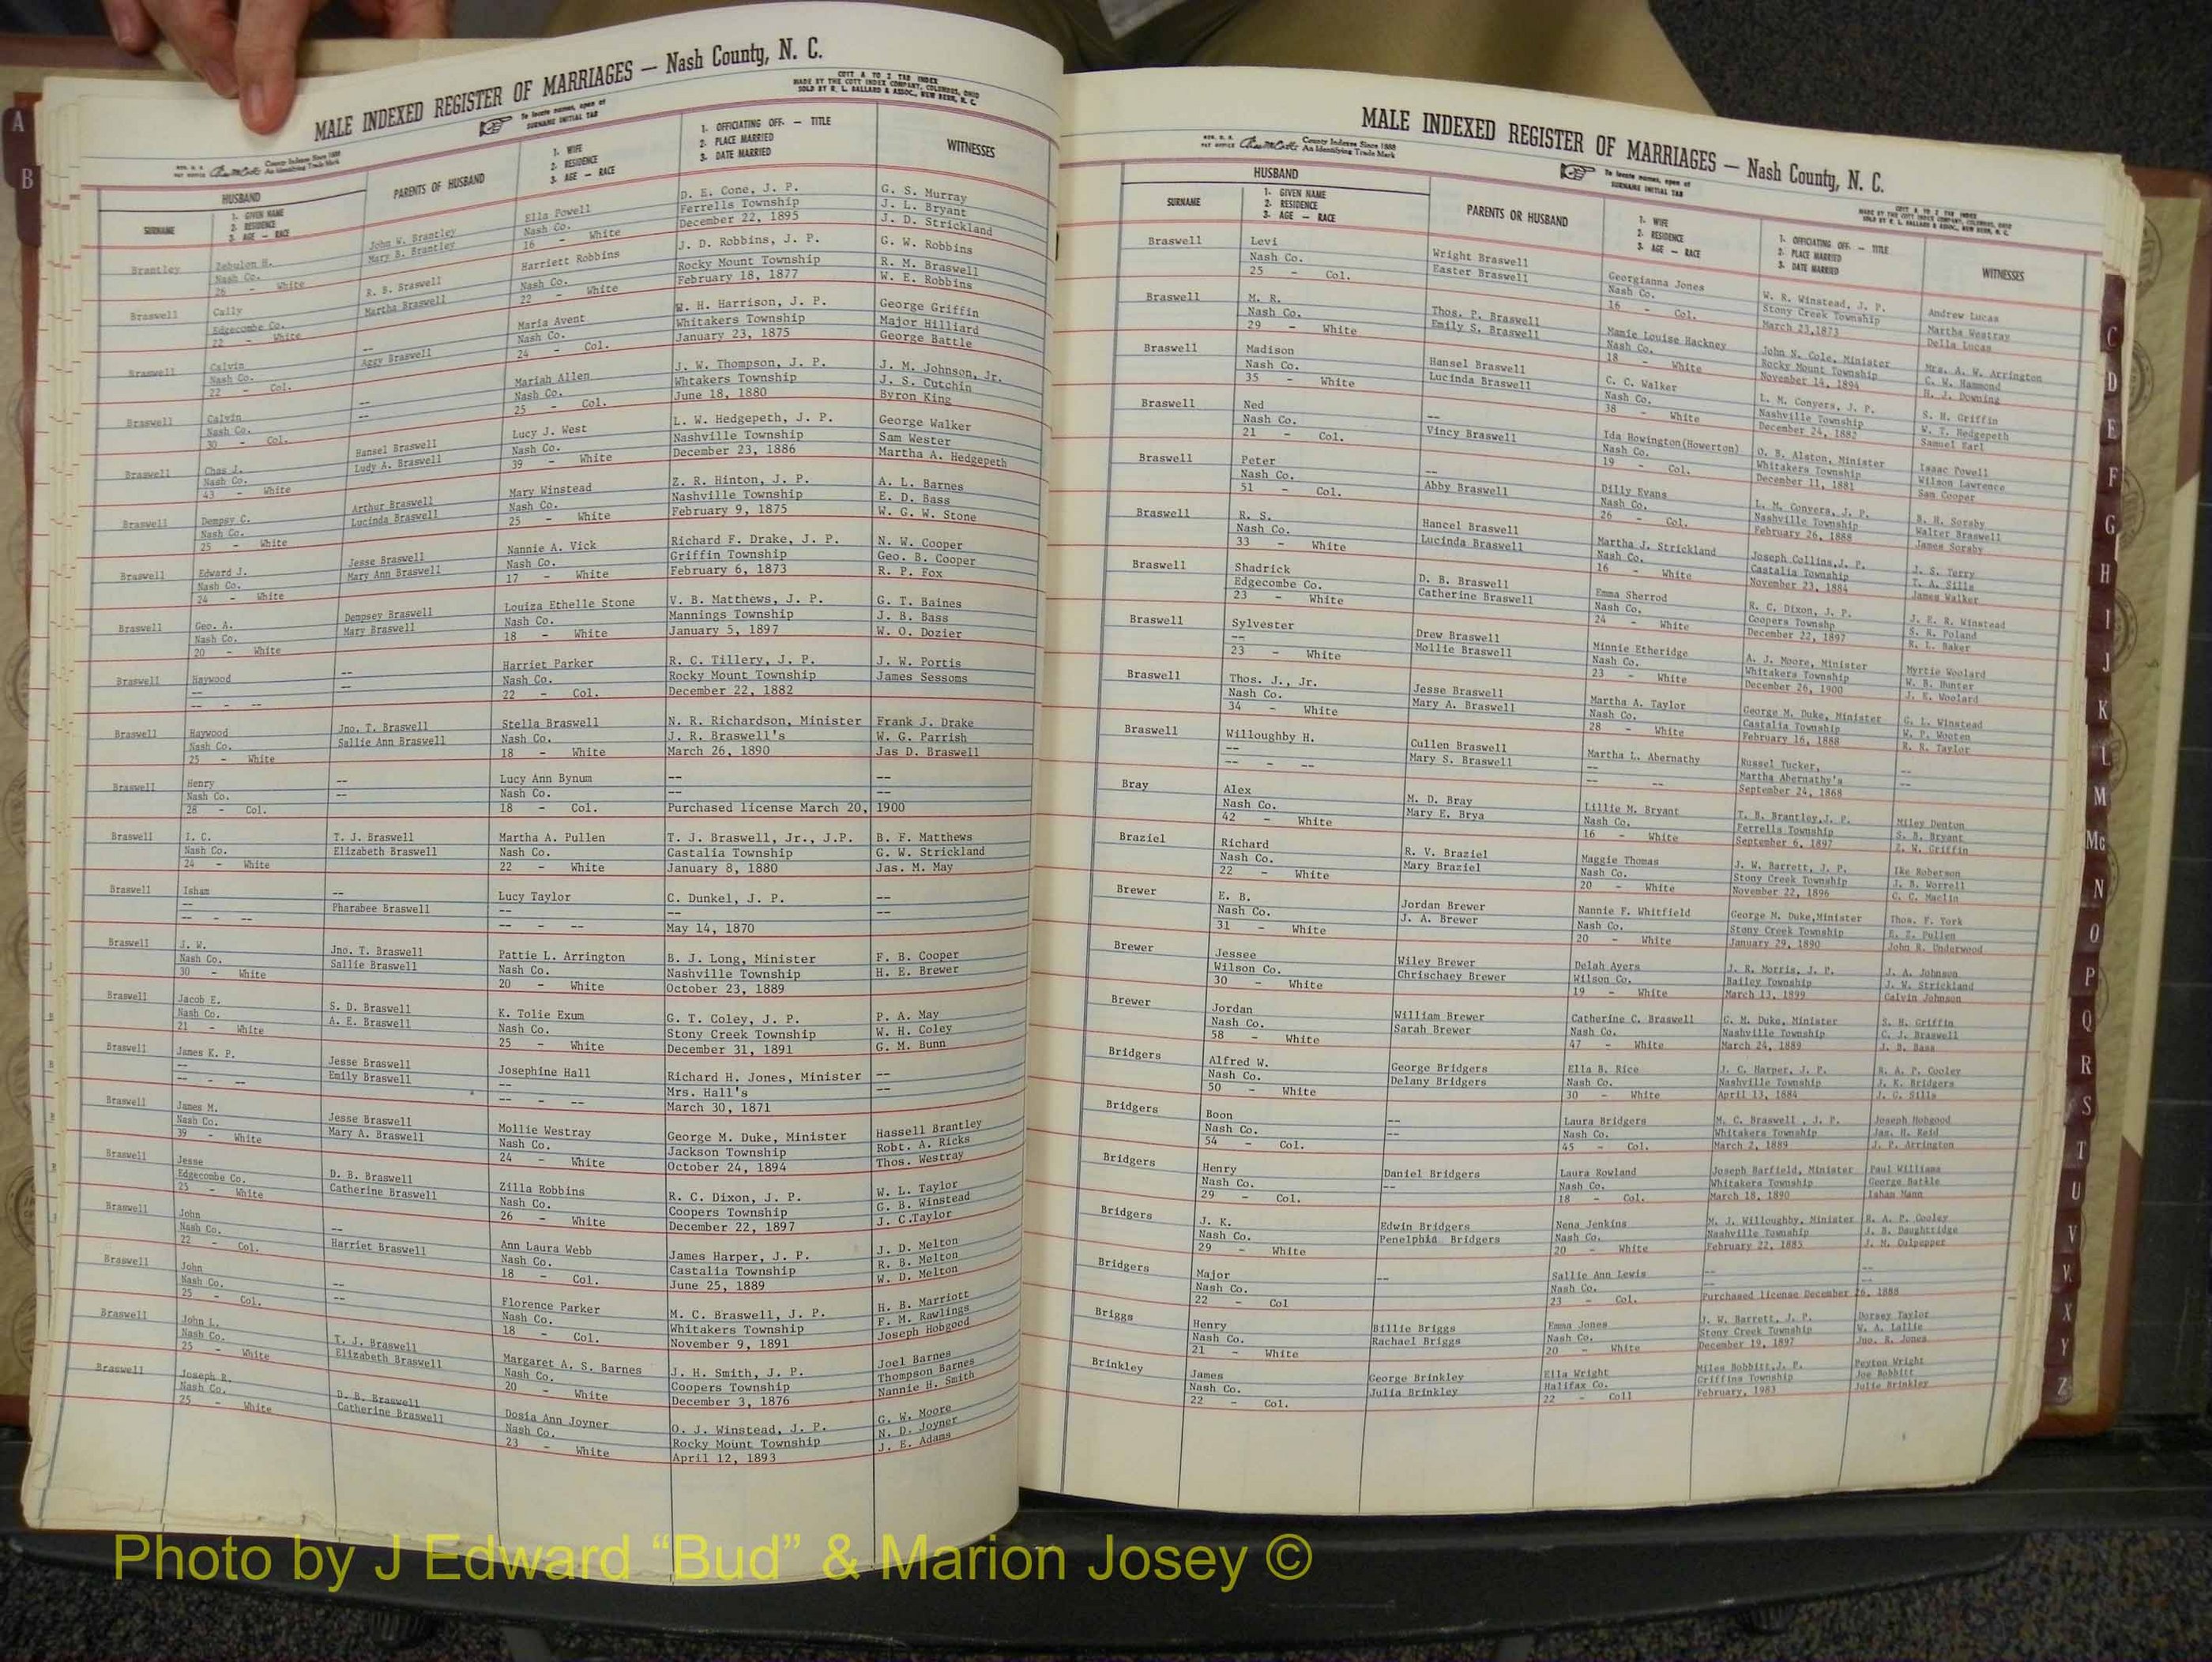 MALE INDEXED REGISTER OF MARRIAGES — Nash County, N. C.
To locate names, open at
SURNAME INITIAL TAB
COTT A TO Z TAB INDEX
MADE BY THE COTT INDEX COMPANY, COLUMBUS, OHIO
SOLD BY R. L. BALLARD & ASSOC., NEW BERN, N. C.
County Indexes Since 1888
An Identifying Trade Mark
HUSBAND
SURNAME
1. GIVEN NAME
2. RESIDENCE
3. AGE — RACE
PARENTS OF HUSBAND
1. WIFE
2. RESIDENCE
3. AGE — RACE
1. OFFICIATING OFF. — TITLE
2. PLACE MARRIED
3. DATE MARRIED
WITNESSES
Brantley Zebulon H. John W. Brantley Ella Powell D. E. Cone, J. P. G. S. Murray
Nash Co. Mary B. Brantley Nash Co. Ferrells Township J. L. Bryant
26 - White 16 - White December 22, 1895 J. D. Strickland
Braswell Cally R. B. Braswell Harriett Robbins J. D. Robbins, J. P. G. W. Robbins
Edgecombe Co. Martha Braswell Nash Co. Rocky Mount Township R. M. Braswell
22 - White 22 - White February 18, 1877 W. E. Robbins
Braswell Calvin -- Maria Avent W. H. Harrison, J. P. George Griffin
Nash Co. Aggy Braswell Nash Co. Whitakers Township Major Hilliard
22 - Col. 24 - Col. January 23, 1875 George Battle
Braswell Calvin -- Mariah Allen J. W. Thompson, J. P. J. M. Johnson, Jr.
Nash Co. -- Nash Co. Whtakers Township J. S. Cutchin
30 - Col. 25 - Col. June 18, 1880 Byron King
Braswell Chas J. Hansel Braswell Lucy J. West L. W. Hedgepeth, J. P. George Walker
Nash Co. Ludy A. Braswell Nash Co. Nashville Township Sam Wester
43 - White 39 - White December 23, 1886 Martha A. Hedgepeth
Braswell Dempsy C. Arthur Braswell Mary Winstead Z. R. Hinton, J. P. A. L. Barnes
Nash Co. Lucinda Braswell Nash Co. Nashville Township E. D. Bass
25 - White 25 - White February 9, 1875 W. G. W. Stone
Braswell Edward J. Jesse Braswell Nannie A. Vick Richard F. Drake, J. P. N. W. Cooper
Nash Co. Mary Ann Braswell Nash Co. Griffin Township Geo. B. Cooper
24 - White 17 - White February 6, 1873 R. P. Fox
Braswell Geo. A. Dempsey Braswell Louiza Ethelle Stone V. B. Matthews, J. P. G. T. Baines
Nash Co. Mary Braswell Nash Co. Mannings Township J. B. Bass
20 - White 18 - White January 5, 1897 W. O. Dozier
Braswell Haywood -- Harriet Parker R. C. Tillery, J. P. J. W. Portis
-- -- Nash Co. Rocky Mount Township James Sessoms
-- - -- 22 - Col. December 22, 1882
Braswell Haywood Jno. T. Braswell Stella Braswell N. R. Richardson, Minister Frank J. Drake
Nash Co. Sallie Ann Braswell Nash Co. J. R. Braswell's W. G. Parrish
25 - White 18 - White March 26, 1890 Jas D. Braswell
Braswell Henry -- Lucy Ann Bynum -- --
Nash Co. -- Nash Co. -- --
28 - Col. 18 - Col. Purchased license March 20, 1900
Braswell I. C. T. J. Braswell Martha A. Pullen T. J. Braswell, Jr., J.P. B. F. Matthews
Nash Co. Elizabeth Braswell Nash Co. Castalia Township G. W. Strickland
24 - White 22 - White January 8, 1880 Jas. M. May
Braswell Isham -- Lucy Taylor C. Dunkel, J. P. --
-- Pharabee Braswell -- -- --
-- - -- -- - -- May 14, 1870
Braswell J. W. Jno. T. Braswell Pattie L. Arrington B. J. Long, Minister F. B. Cooper
Nash Co. Sallie Braswell Nash Co. Nashville Township H. E. Brewer
30 - White 20 - White October 23, 1889
Braswell Jacob E. S. D. Braswell K. Tolie Exum G. T. Coley, J. P. P. A. May
Nash Co. A. E. Braswell Nash Co. Stony Creek Township W. H. Coley
21 - White 25 - White December 31, 1891 G. M. Bunn
Braswell James K. P. Jesse Braswell Josephine Hall Richard H. Jones, Minister --
-- Emily Braswell -- Mrs. Hall's --
-- - -- -- - -- March 30, 1871
Braswell James M. Jesse Braswell Mollie Westray George M. Duke, Minister Hassell Brantley
Nash Co. Mary A. Braswell Nash Co. Jackson Township Robt. A. Ricks
39 - White 24 - White October 24, 1894 Thos. Westray
Braswell Jesse D. B. Braswell Zilla Robbins R. C. Dixon, J. P. W. L. Taylor
Edgecombe Co. Catherine Braswell Nash Co. Coopers Township G. B. Winstead
25 - White 26 - White December 22, 1897 J. C.Taylor
Braswell John -- Ann Laura Webb James Harper, J. P. J. D. Melton
Nash Co. Harriet Braswell Nash Co. Castalia Township R. B. Melton
22 - Col. 18 - Col. June 25, 1889 W. D. Melton
Braswell John -- Florence Parker M. C. Braswell, J. P. H. B. Marriott
Nash Co. -- Nash Co. Whitakers Township F. M. Rawlings
25 - Col. 18 - Col. November 9, 1891 Joseph Hobgood
Braswell John L. T. J. Braswell Margaret A. S. Barnes J. H. Smith, J. P. Joel Barnes
Nash Co. Elizabeth Braswell Nash Co. Coopers Township Thompson Barnes
25 - White 20 - White December 3, 1876 Nannie H. Smith
Braswell Joseph R. D. B. Braswell Dosia Ann Joyner O. J. Winstead, J. P. G. W. Moore
Nash Co. Catherine Braswell Nash Co. Rocky Mount Township N. D. Joyner
25 - White 23 - White April 12, 1893 J. E. Adams
MALE INDEXED REGISTER OF MARRIAGES — Nash County, N. C.
County Indexes Since 1888
An Identifying Trade Mark
To locate names, open at
SURNAME INITIAL TAB
COTT A TO Z TAB INDEX
MADE BY THE COTT INDEX COMPANY, COLUMBUS, OHIO
SOLD BY R. L. BALLARD & ASSOC., NEW BERN, N. C.
HUSBAND
SURNAME
1. GIVEN NAME
2. RESIDENCE
3. AGE — RACE
PARENTS OR HUSBAND
1. WIFE
2. RESIDENCE
3. AGE — RACE
1. OFFICIATING OFF. — TITLE
2. PLACE MARRIED
3. DATE MARRIED
WITNESSES
Braswell Levi Wright Braswell Georgianna Jones W. R. Winstead, J. P. Andrew Lucas
Nash Co. Easter Braswell Nash Co. Stony Creek Township Martha Westray
25 - Col. 16 - Col. March 23,1873 Della Lucas
Braswell M. R. Thos. P. Braswell Mamie Louise Hackney John N. Cole, Minister Mrs. A. W. Arrington
Nash Co. Emily S. Braswell Nash Co. Rocky Mount Township C. W. Hammond
29 - White 18 - White November 14, 1894 H. J. Downing
Braswell Madison Hansel Braswell C. C. Walker L. M. Conyers, J. P. S. H. Griffin
Nash Co. Lucinda Braswell Nash Co. Nashville Township W. T. Hedgepeth
35 - White 38 - White December 24, 1882 Samuel Earl
Braswell Ned -- Ida Howington(Howerton) O. B. Alston, Minister Isaac Powell
Nash Co. Vincy Braswell Nash Co. Whitakers Township Wilson Lawrence
21 - Col. 19 - Col. December 11, 1881 Sam Cooper
Braswell Peter -- Dilly Evans L. M. Conyers, J. P. B. H. Sorsby
Nash Co. Abby Braswell Nash Co. Nashville Township Walter Braswell
51 - Col. 26 - Col. February 26, 1888 James Sorsby
Braswell R. S. Hancel Braswell Martha J. Strickland Joseph Collins,J. P. J. S. Terry
Nash Co. Lucinda Braswell Nash Co. Castalia Township T. A. Sills
33 - White 16 - White November 23, 1884 James Walker
Braswell Shadrick D. B. Braswell Emma Sherrod R. C. Dixon, J. P. J. E. R. Winstead
Edgecombe Co. Catherine Braswell Nash Co. Coopers Townshp S. R. Poland
23 - White 24 - White December 22, 1897 R. L. Baker
Braswell Sylvester Drew Braswell Minnie Etheridge A. J. Moore, Minister Myrtie Woolard
-- Mollie Braswell Nash Co. Whitakers Township W. B. Hunter
23 - White 23 - White December 26, 1900 J. E. Woolard
Braswell Thos. J., Jr. Jesse Braswell Martha A. Taylor George M. Duke, Minister G. L. Winstead
Nash Co. Mary A. Braswell Nash Co. Castalia Township W. P. Wooten
34 - White 28 - White February 16, 1888 R. R. Taylor
Braswell Willoughby H. Cullen Braswell Martha L. Abernathy Russel Tucker, --
-- Mary S. Braswell -- Martha Abernathy's --
-- - -- -- -- September 24, 1868
Bray Alex M. D. Bray Lillie M. Bryant T. B. Brantley,J. P. Miley Denton
Nash Co. Mary E. Brya Nash Co. Ferrells Township S. B. Bryant
42 - White 16 - White September 6, 1897 Z. W. Griffin
Braziel Richard R. V. Braziel Maggie Thomas J. W. Barrett, J. P. Ike Roberson
Nash Co. Mary Braziel Nash Co. Stony Creek Township J. B. Worrell
22 - White 20 - White November 22, 1896 G. C. Maclin
Brewer E. B. Jordan Brewer Nannie F. Whitfield George M. Duke,Minister Thos. F. York
Nash Co. J. A. Brewer Nash Co. Stony Creek Township E. Z. Pullen
31 - White 20 - White January 29, 1890 John R. Underwood
Brewer Jessee Wiley Brewer Delah Ayers J. R. Morris, J. P. J. A. Johnson
Wilson Co. Chrischaey Brewer Wilson Co. Bailey Township J. W. Strickland
30 - White 19 - White March 13, 1899 Calvin Johnson
Brewer Jordan William Brewer Catherine C. Braswell G. M. Duke, Minister S. H. Griffin
Nash Co. Sarah Brewer Nash Co. Nashville Township C. J. Braswell
58 - White 47 - White March 24, 1889 J. B. Bass
Bridgers Alfred W. George Bridgers Ella B. Rice J. C. Harper, J. P. R. A. P. Cooley
Nash Co. Delany Bridgers Nash Co. Nashville Township J. K. Bridgers
50 - White 30 - White April 13, 1884 J. G. Sills
Bridgers Boon -- Laura Bridgers M. C. Braswell , J. P. Joseph Hobgood
Nash Co. -- Nash Co. Whitakers Township Jas. H. Reid
54 - Col. 45 - Col. March 2, 1889 J. P. Arrington
Bridgers Henry Daniel Bridgers Laura Rowland Joseph Barfield, Minister Paul Williams
Nash Co. -- Nash Co. Whitakers Township George Battle
29 - Col. 18 - Col. March 18, 1890 Isham Mann
Bridgers J. K. Edwin Bridgers Nena Jenkins M. J. Willoughby, Minister R. A. P. Cooley
Nash Co. Penelphia Bridgers Nash Co. Nashville Township J. B. Daughtridge
29 - White 20 - White February 22, 1885 J. M. Culpepper
Bridgers Major -- Sallie Ann Lewis -- --
Nash Co. Nash Co. -- --
22 - Col 23 - Col. Purchased license December 26, 1888
Briggs Henry Billie Briggs Emma Jones J. W. Barrett, J. P. Dorsey Taylor
Nash Co. Rachael Briggs Nash Co. Stony Creek Township W. A. Lallie
21 - White 20 - White December 19, 1897 Jno. R. Jones
Brinkley James George Brinkley Ella Wright Miles Bobbitt,J. P. Peyton Wright
Nash Co. Julia Brinkley Halifax Co. Griffins Township Joe Bobbitt
22 - Col. 22 - Coll February, 1983 Julie Brinkley
A
B
C
D
E
F
G
H
I
J
K
L
M
Mc
N
O
P
Q
R
S
T
U
V
X
Y
Z
Photo by J Edward “Bud” & Marion Josey ©